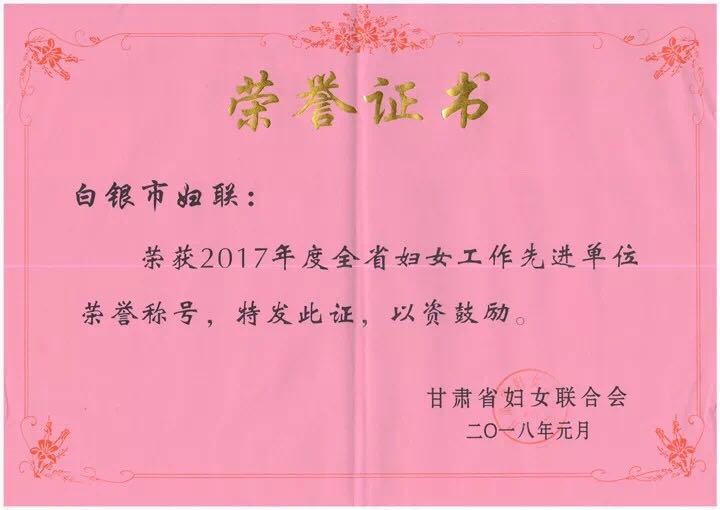 荣誉证书
白银市妇联：
荣获2017年度全省妇女工作先进单位
荣誉称号，特发此证，以资鼓励。
甘肃省妇女联合会
二〇一八年元月